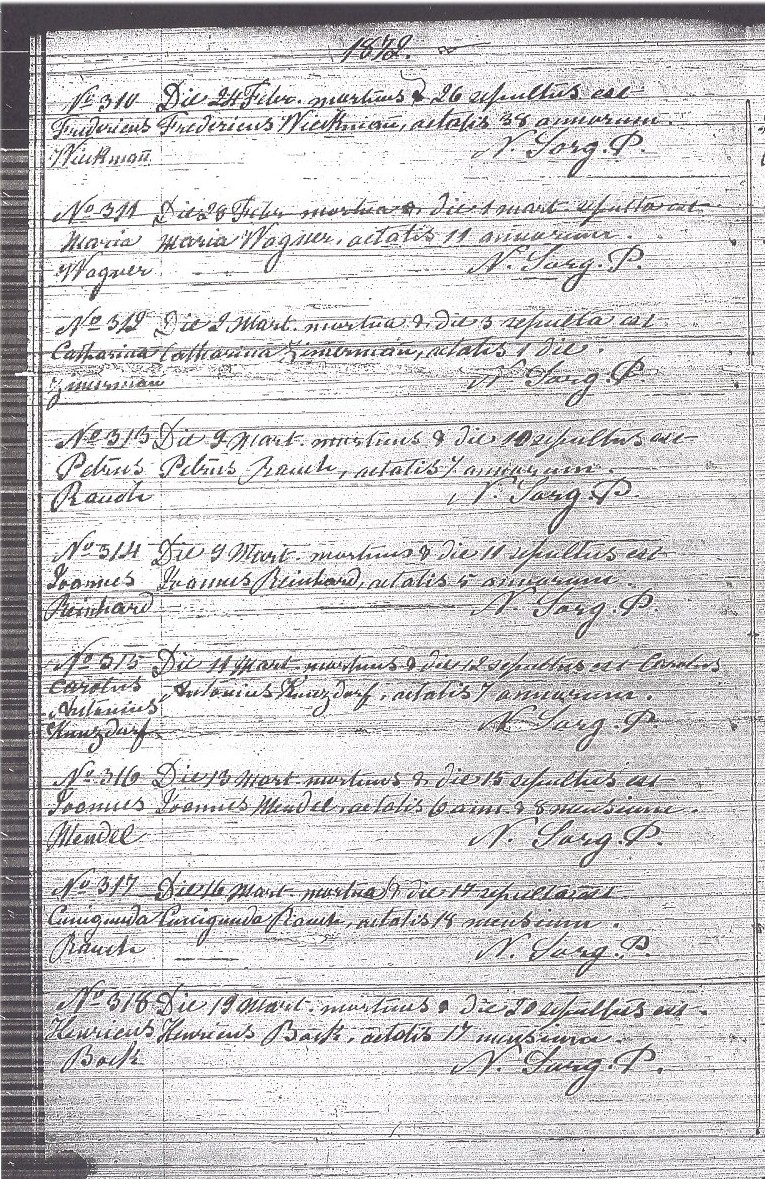 1872.
No 310 Die 24 Febr. mortuus & 26 sepultus est
Fredericus Fredericus Wiekman̄, aetatis 38 annorum.
Wiekman̄ N. Sorg. P.
No 311 Die 28 Febr mortua & die 1 mart. sepulta est
Maria Maria Wagner, aetatis 11 annorum.
Wagner N. Sorg. P.
No 312 Die 2 Mart. mortua & die 3 sepulta est
Catharina Catharina Zimerman̄, aetatis 1 die.
Zimerman N. Sorg. P.
No 313 Die 9 Mart. mortuus & die 10 sepultus est
Petrus Petrus Rauch, aetatis 7 annorum.
Rauch N. Sorg. P.
No 314 Die 9 Mart. mortuus & die 11 sepultus est
Joannes Joannes Reinhard, aetatis 5 annorum.
Reinhard N. Sorg. P.
No 315 Die 11 Mart. mortuus & die 12 sepultus est Carolus
Carolus Antonius Kunzdorf, aetatis 7 annorum.
Antonius
Kunzdorf N. Sorg. P.
No 316 Die 13 Mart. mortuus & die 15 sepultus est
Joannes Joannes Mendel, aetatis 6 ann. & 8 mensium.
Mendel N. Sorg. P.
No 317 Die 16 Mart. mortua & die 17 sepulta est
Cunigunda Cunigunda Rauch, aetatis 18 mensium.
Rauch N. Sorg. P.
No 318 Die 19 Mart. mortuus & die 20 sepultus est.
Henricus Henricus Bock, aetatis 17 mensium.
Bock N. Sorg. P.